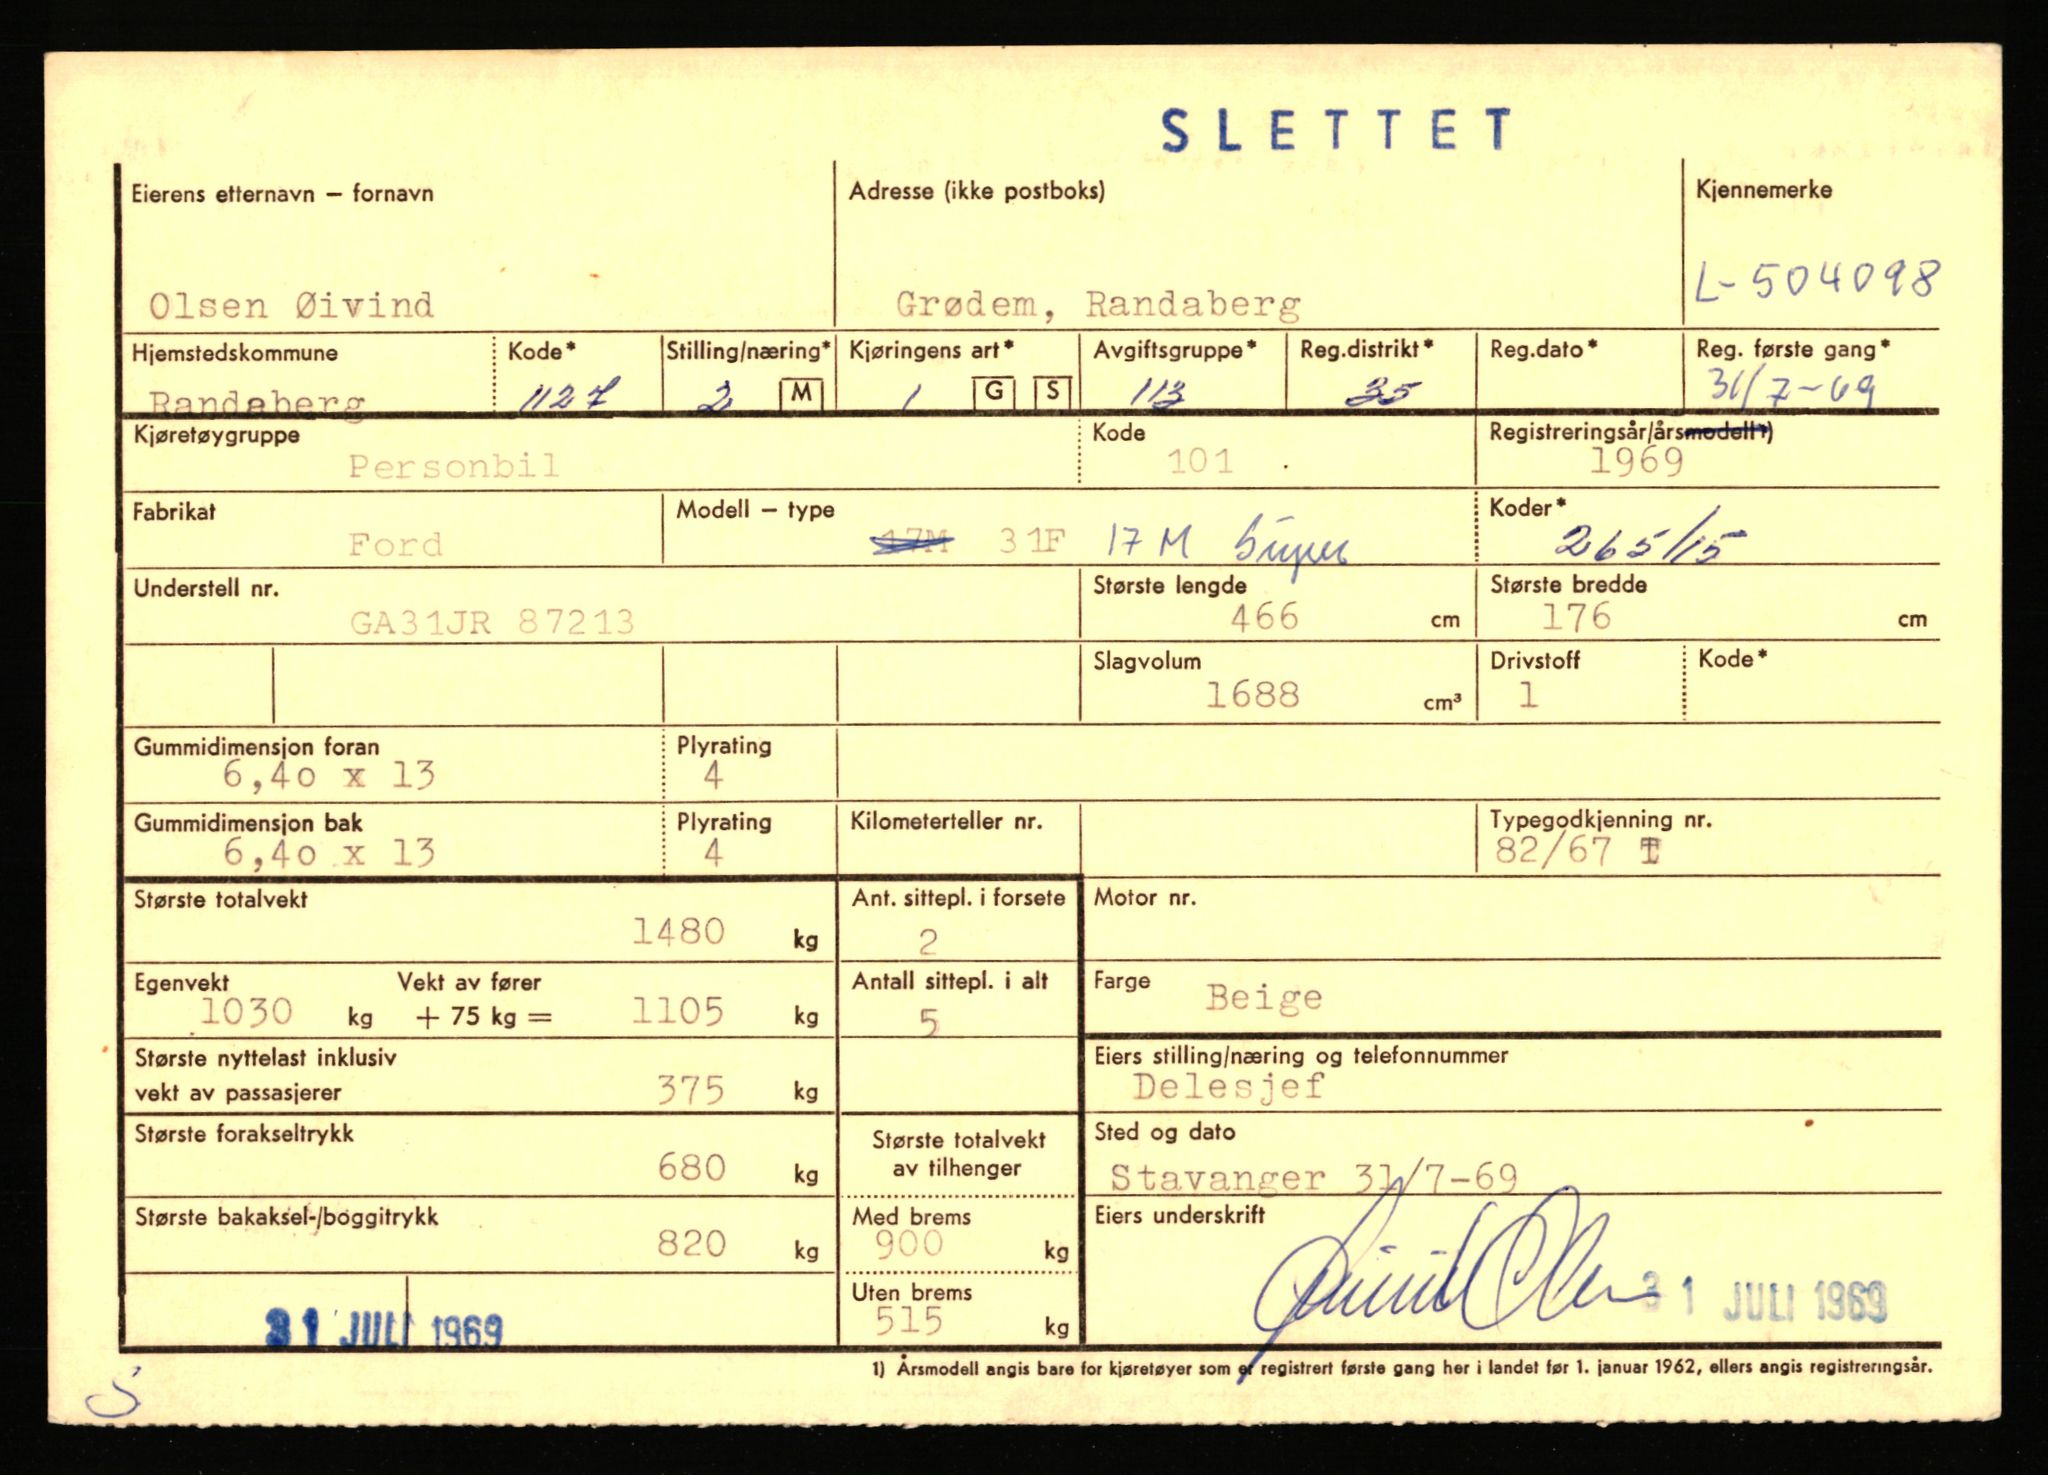 SLETTET
Eierens etternavn – fornavn
Adresse (ikke postboks)
Kjennemerke
Olsen Øivind
Grødem, Randaberg
L-504098
Hjemstedskommune
Kode*
Stilling/næring*
Kjøringens art*
Avgiftsgruppe*
Reg.distrikt*
Reg.dato*
Reg. første gang*
Randaberg
1127
2
M
1
G
S
113
35
31/7-69
Kjøretøygruppe
Kode
Registreringsår/årsmodell 1)
Personbil
101
1969
Fabrikat
Modell – type
Koder*
Ford
17M 31F 17 M Super
265/15
Understell nr.
Største lengde
Største bredde
GA31JR 87213
466 cm
176 cm
Slagvolum
Drivstoff
Kode*
1688 cm³
1
Gummidimensjon foran
Plyrating
6,40 x 13
4
Gummidimensjon bak
Plyrating
Kilometerteller nr.
Typegodkjenning nr.
6,40 x 13
4
82/67 T
Største totalvekt
Ant. sittepl. i forsete
Motor nr.
1480 kg
2
Egenvekt
Vekt av fører
Antall sittepl. i alt
Farge
1030 kg + 75 kg = 1105 kg
5
Beige
Største nyttelast inklusiv
vekt av passasjerer
375 kg
Eiers stilling/næring og telefonnummer
Delesjef
Største forakseltrykk
680 kg
Største totalvekt
av tilhenger
Sted og dato
Stavanger 31/7-69
Største bakaksel-/boggitrykk
820 kg
Med brems
900 kg
Eiers underskrift
Øivind Olsen
31 JULI 1969
Uten brems
515 kg
31 JULI 1969
1) Årsmodell angis bare for kjøretøyer som er registrert første gang her i landet før 1. januar 1962, ellers angis registreringsår.